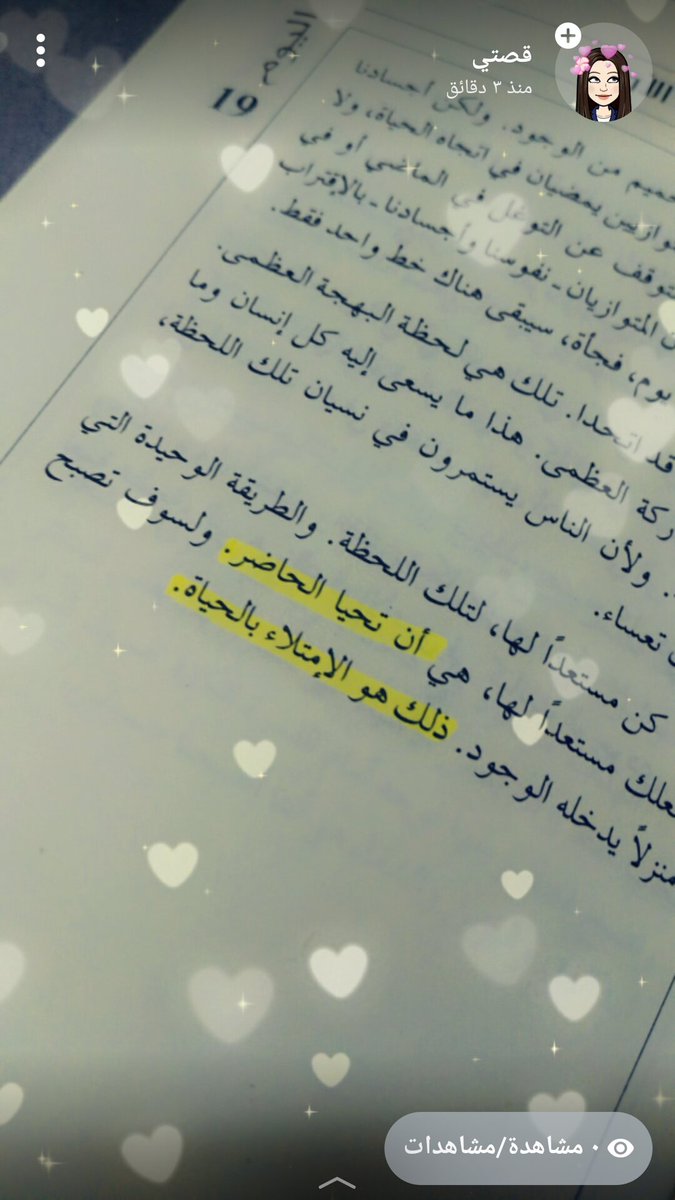 قصتي
منذ ٣ دقائق
19
من الوجود. ولكن أجسادنا
يمضيان في اتجاه الحياة، ولا
عن التوغل في الماضي أو في
المتوازيان - نفوسنا وأجسادنا - بالإقتراب
يوم، فجأة، سيبقى هناك خط واحد فقط.
قد اتحدا. تلك هي لحظة البهجة العظمى.
العظمى. هذا ما يسعى إليه كل إنسان وما
ولأن الناس يستمرون في نسيان تلك اللحظة،
تعساء.
كن مستعداً لها، لتلك اللحظة. والطريقة الوحيدة التي
مستعداً لها، هي أن تحيا الحاضر. ولسوف تصبح
منزلاً يدخله الوجود. ذلك هو الإمتلاء بالحياة.
٠ مشاهدة/مشاهدات